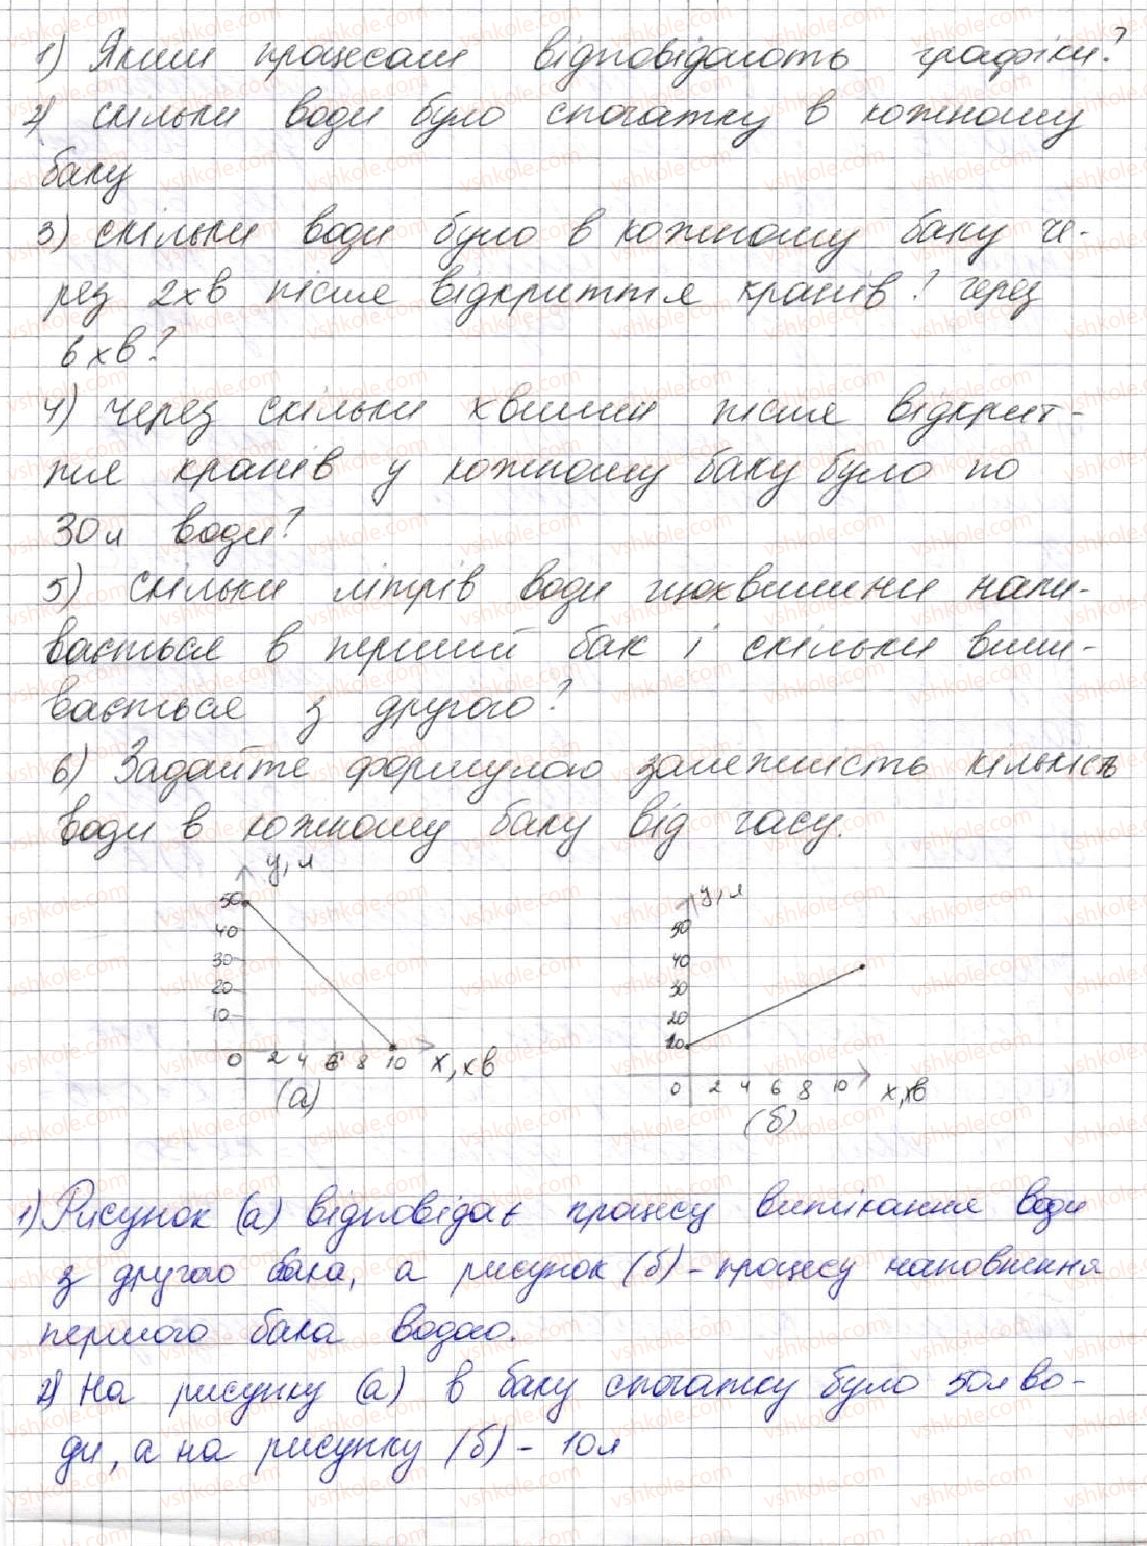 1) Яким процесам відповідають графіки?
2) скільки води було спочатку в кожному
баку
3) скільки води було в кожному баку че-
рез 2хв після відкриття кранів? через
6 хв?
4) через скільки хвилин після відкрит-
тя кранів у кожному баку було по
30л води?
5) скільки літрів води щохвилини нали-
вається в перший бак і скільки вили-
вається з другого?
6) Задайте формулою залежність кількість
води в кожному баку від часу.
y, л
50
40
30
20
10
0 2 4 6 8 10 x, хв
(а)
y, л
50
40
30
20
10
0 2 4 6 8 10 x, хв
(б)
1) Рисунок (а) відповідає процесу витікання води
з другого бака, а рисунок (б) - процесу наповнення
першого бака водою.
2) На рисунку (а) в баку спочатку було 50л во-
ди, а на рисунку (б) - 10л